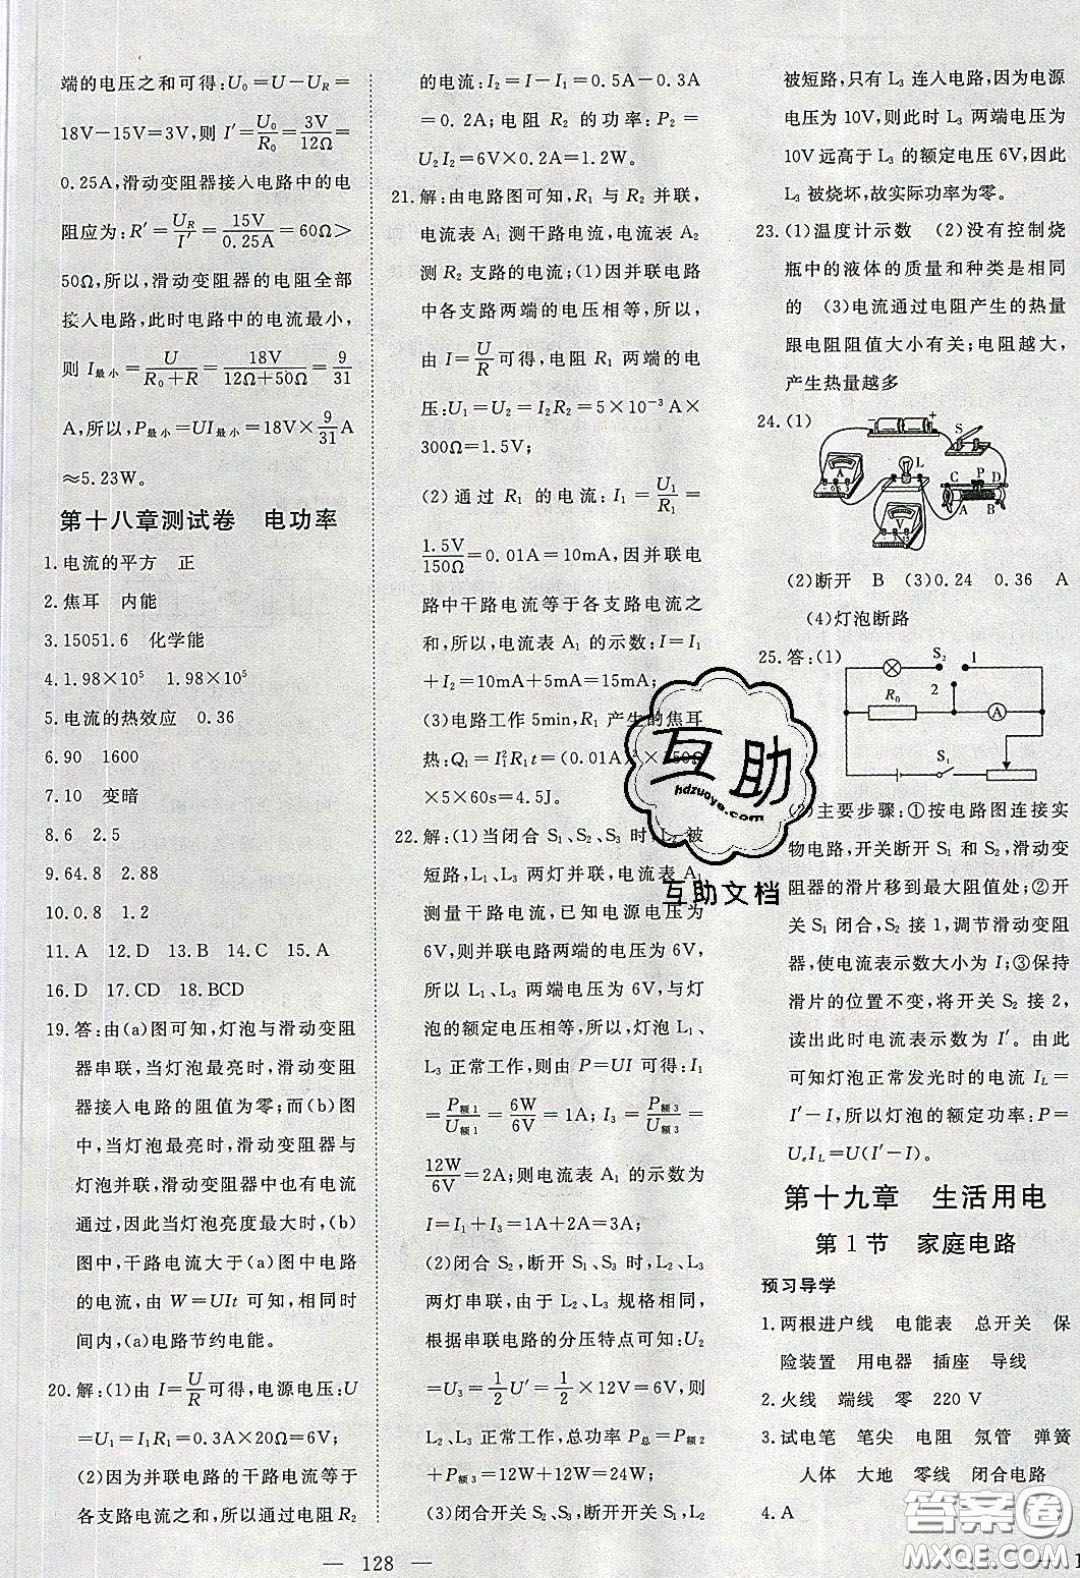 端的电压之和可得:U₀=U-U_R=
18V-15V=3V,则 I′=U₀/R₀=3V/12Ω=
0.25A,滑动变阻器接入电路中的电
阻应为:R′=U_R/I′=15V/0.25A=60Ω>
50Ω,所以,滑动变阻器的电阻全部
接入电路,此时电路中的电流最小,
则 I最小=U/(R₀+R)=18V/(12Ω+50Ω)=9/31
A,所以,P最小=UI最小=18V×9/31A
≈5.23W。
第十八章测试卷 电功率
1.电流的平方 正
2.焦耳 内能
3.15051.6 化学能
4.1.98×10⁵ 1.98×10⁵
5.电流的热效应 0.36
6.90 1600
7.10 变暗
8.6 2.5
9.64.8 2.88
10.0.8 1.2
11.A 12.D 13.B 14.C 15.A
16.D 17.CD 18.BCD
19.答:由(a)图可知,灯泡与滑动变阻
器串联,当灯泡最亮时,滑动变阻
器接入电路的阻值为零;而(b)图
中,当灯泡最亮时,滑动变阻器与
灯泡并联,滑动变阻器中也有电流
通过,因此当灯泡亮度最大时,(b)
图中,干路电流大于(a)图中电路
的电流,由 W=UIt 可知,在相同时
间内,(a)电路节约电能。
20.解:(1)由 I=U/R可得,电源电压:U
=U₁=I₁R₁=0.3A×20Ω=6V;
(2)因为并联电路的干路电流等于
各支路电流之和,所以通过电阻 R₂
的电流:I₂=I-I₁=0.5A-0.3A
=0.2A;电阻 R₂ 的功率:P₂=
U₂I₂=6V×0.2A=1.2W。
21.解:由电路图可知,R₁ 与 R₂ 并联,
电流表 A₁ 测干路电流,电流表 A₂
测 R₂ 支路的电流;(1)因并联电路
中各支路两端的电压相等,所以,
由 I=U/R可得,电阻 R₁ 两端的电
压:U₁=U₂=I₂R₂=5×10⁻³A×
300Ω=1.5V;
(2)通过 R₁ 的电流:I₁=U₁/R₁=
1.5V/150Ω=0.01A=10mA,因并联电
路中干路电流等于各支路电流之
和,所以,电流表 A₁ 的示数:I=I₁
+I₂=10mA+5mA=15mA;
(3)电路工作 5min,R₁ 产生的焦耳
热:Q₁=I₁²R₁t=(0.01A)²×150Ω
×5×60s=4.5J。
22.解:(1)当闭合 S₁、S₂、S₃ 时,L₂ 被
短路,L₁、L₃ 两灯并联,电流表 A₁
测量干路电流,已知电源电压为
6V,则并联电路两端的电压为 6V,
所以 L₁、L₃ 两端电压为 6V,与灯
泡的额定电压相等,所以,灯泡 L₁、
L₃ 正常工作,则由 P=UI 可得:I₁
=P额1/U额1=6W/6V=1A;I₃=P额3/U额3=
12W/6V=2A;则电流表 A₁ 的示数为
I=I₁+I₃=1A+2A=3A;
(2)闭合 S₂,断开 S₁、S₃ 时,L₂、L₃
两灯串联,由于 L₂、L₃ 规格相同,
根据串联电路的分压特点可知:U₂
=U₃=1/2U′=1/2×12V=6V,则
L₂、L₃ 正常工作,总功率 P总=P额2
+P额3=12W+12W=24W;
(3)闭合开关 S₁,断开开关 S₂,L₂
被短路,只有 L₃ 连入电路,因为电源
电压为 10V,则此时 L₃ 两端电压为
10V 远高于 L₃ 的额定电压 6V,因此
L₃ 被烧坏,故实际功率为零。
23.(1)温度计示数 (2)没有控制烧
瓶中的液体的质量和种类是相同
的 (3)电流通过电阻产生的热量
跟电阻阻值大小有关;电阻越大,
产生热量越多
24.(1)
+
S
A
L
C P D
A B
V
(2)断开 B (3)0.24 0.36 A
(4)灯泡断路
25.答:(1)
S₂ 1
2
R₀
A
S₁
(2)主要步骤:①按电路图连接实
物电路,开关断开 S₁ 和 S₂,滑动变
阻器的滑片移到最大阻值处;②开
关 S₁ 闭合,S₂ 接 1,调节滑动变阻
器,使电流表示数大小为 I;③保持
滑片的位置不变,将开关 S₂ 接 2,
读出此时电流表示数为 I′。由此
可知灯泡正常发光时的电流 I_L=
I′-I,所以灯泡的额定功率:P=
UₑI_L=U(I′-I)。
第十九章 生活用电
第 1 节 家庭电路
预习导学
1.两根进户线 电能表 总开关 保
险装置 用电器 插座 导线
2.火线 端线 零 220 V
3.试电笔 笔尖 电阻 氖管 弹簧
人体 大地 零线 闭合电路
4.A
— 128 —
互助
hdzuoye.com
互助文档
答案圈
MXQE.COM